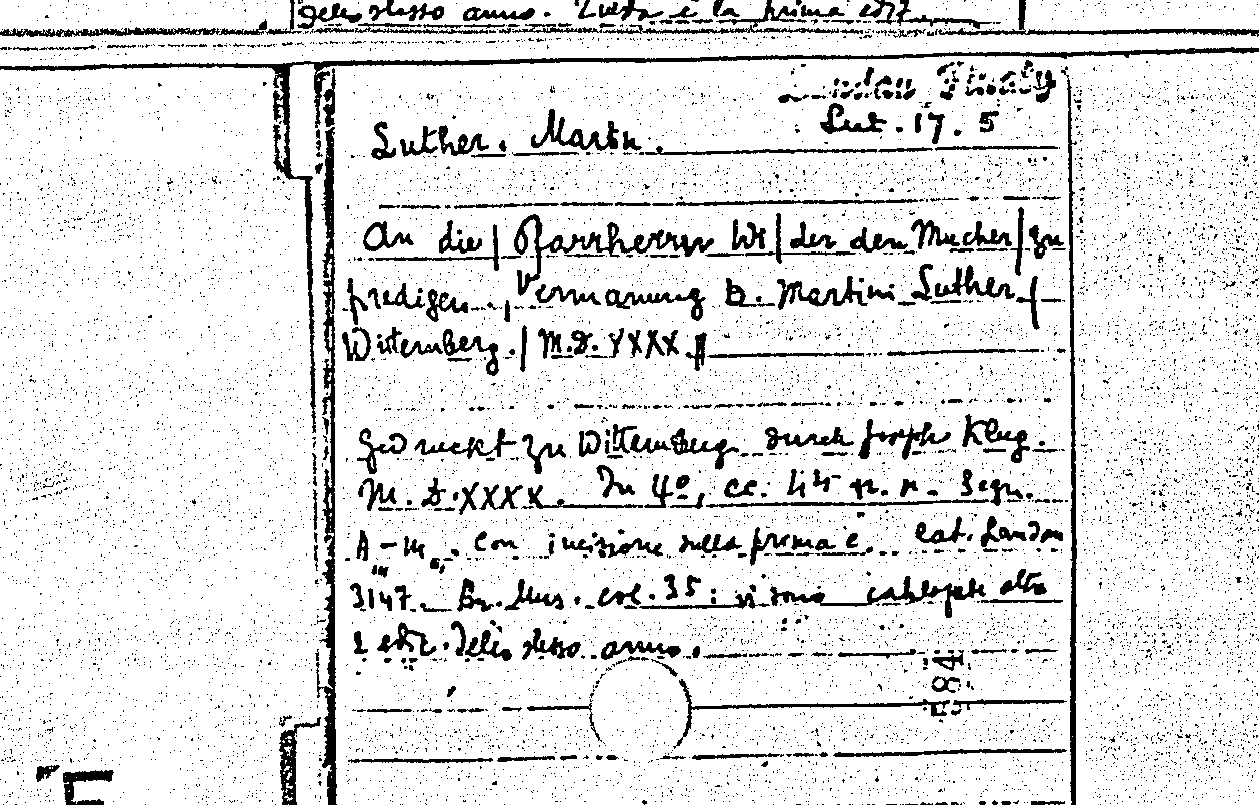 dello stesso anno. Questa è la prima ediz.
Landau Finaly
Lut. 17. 5
Luther. Martin.
An die | Pfarrherrn Wi | der den Wucher | zu
predigen. | Vermanung D. Martini Luther |
Wittemberg. | M.D. XXXX ||
Gedruckt zu Wittemberg durch Joseph Klug.
M.D.XXXX. In 4º, cc. 44 n. n. Segn.
A-M. Con incisione sulla prima c. Cat. Landau
3147. Br. Mus. col. 35: vi sono catalogate altre
2 ediz. dello stesso anno.
584
E